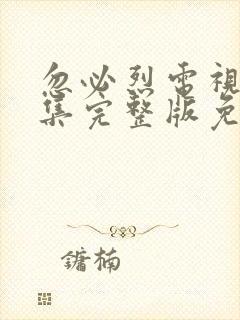 忽必烈電視
集完整版免
鏞楠